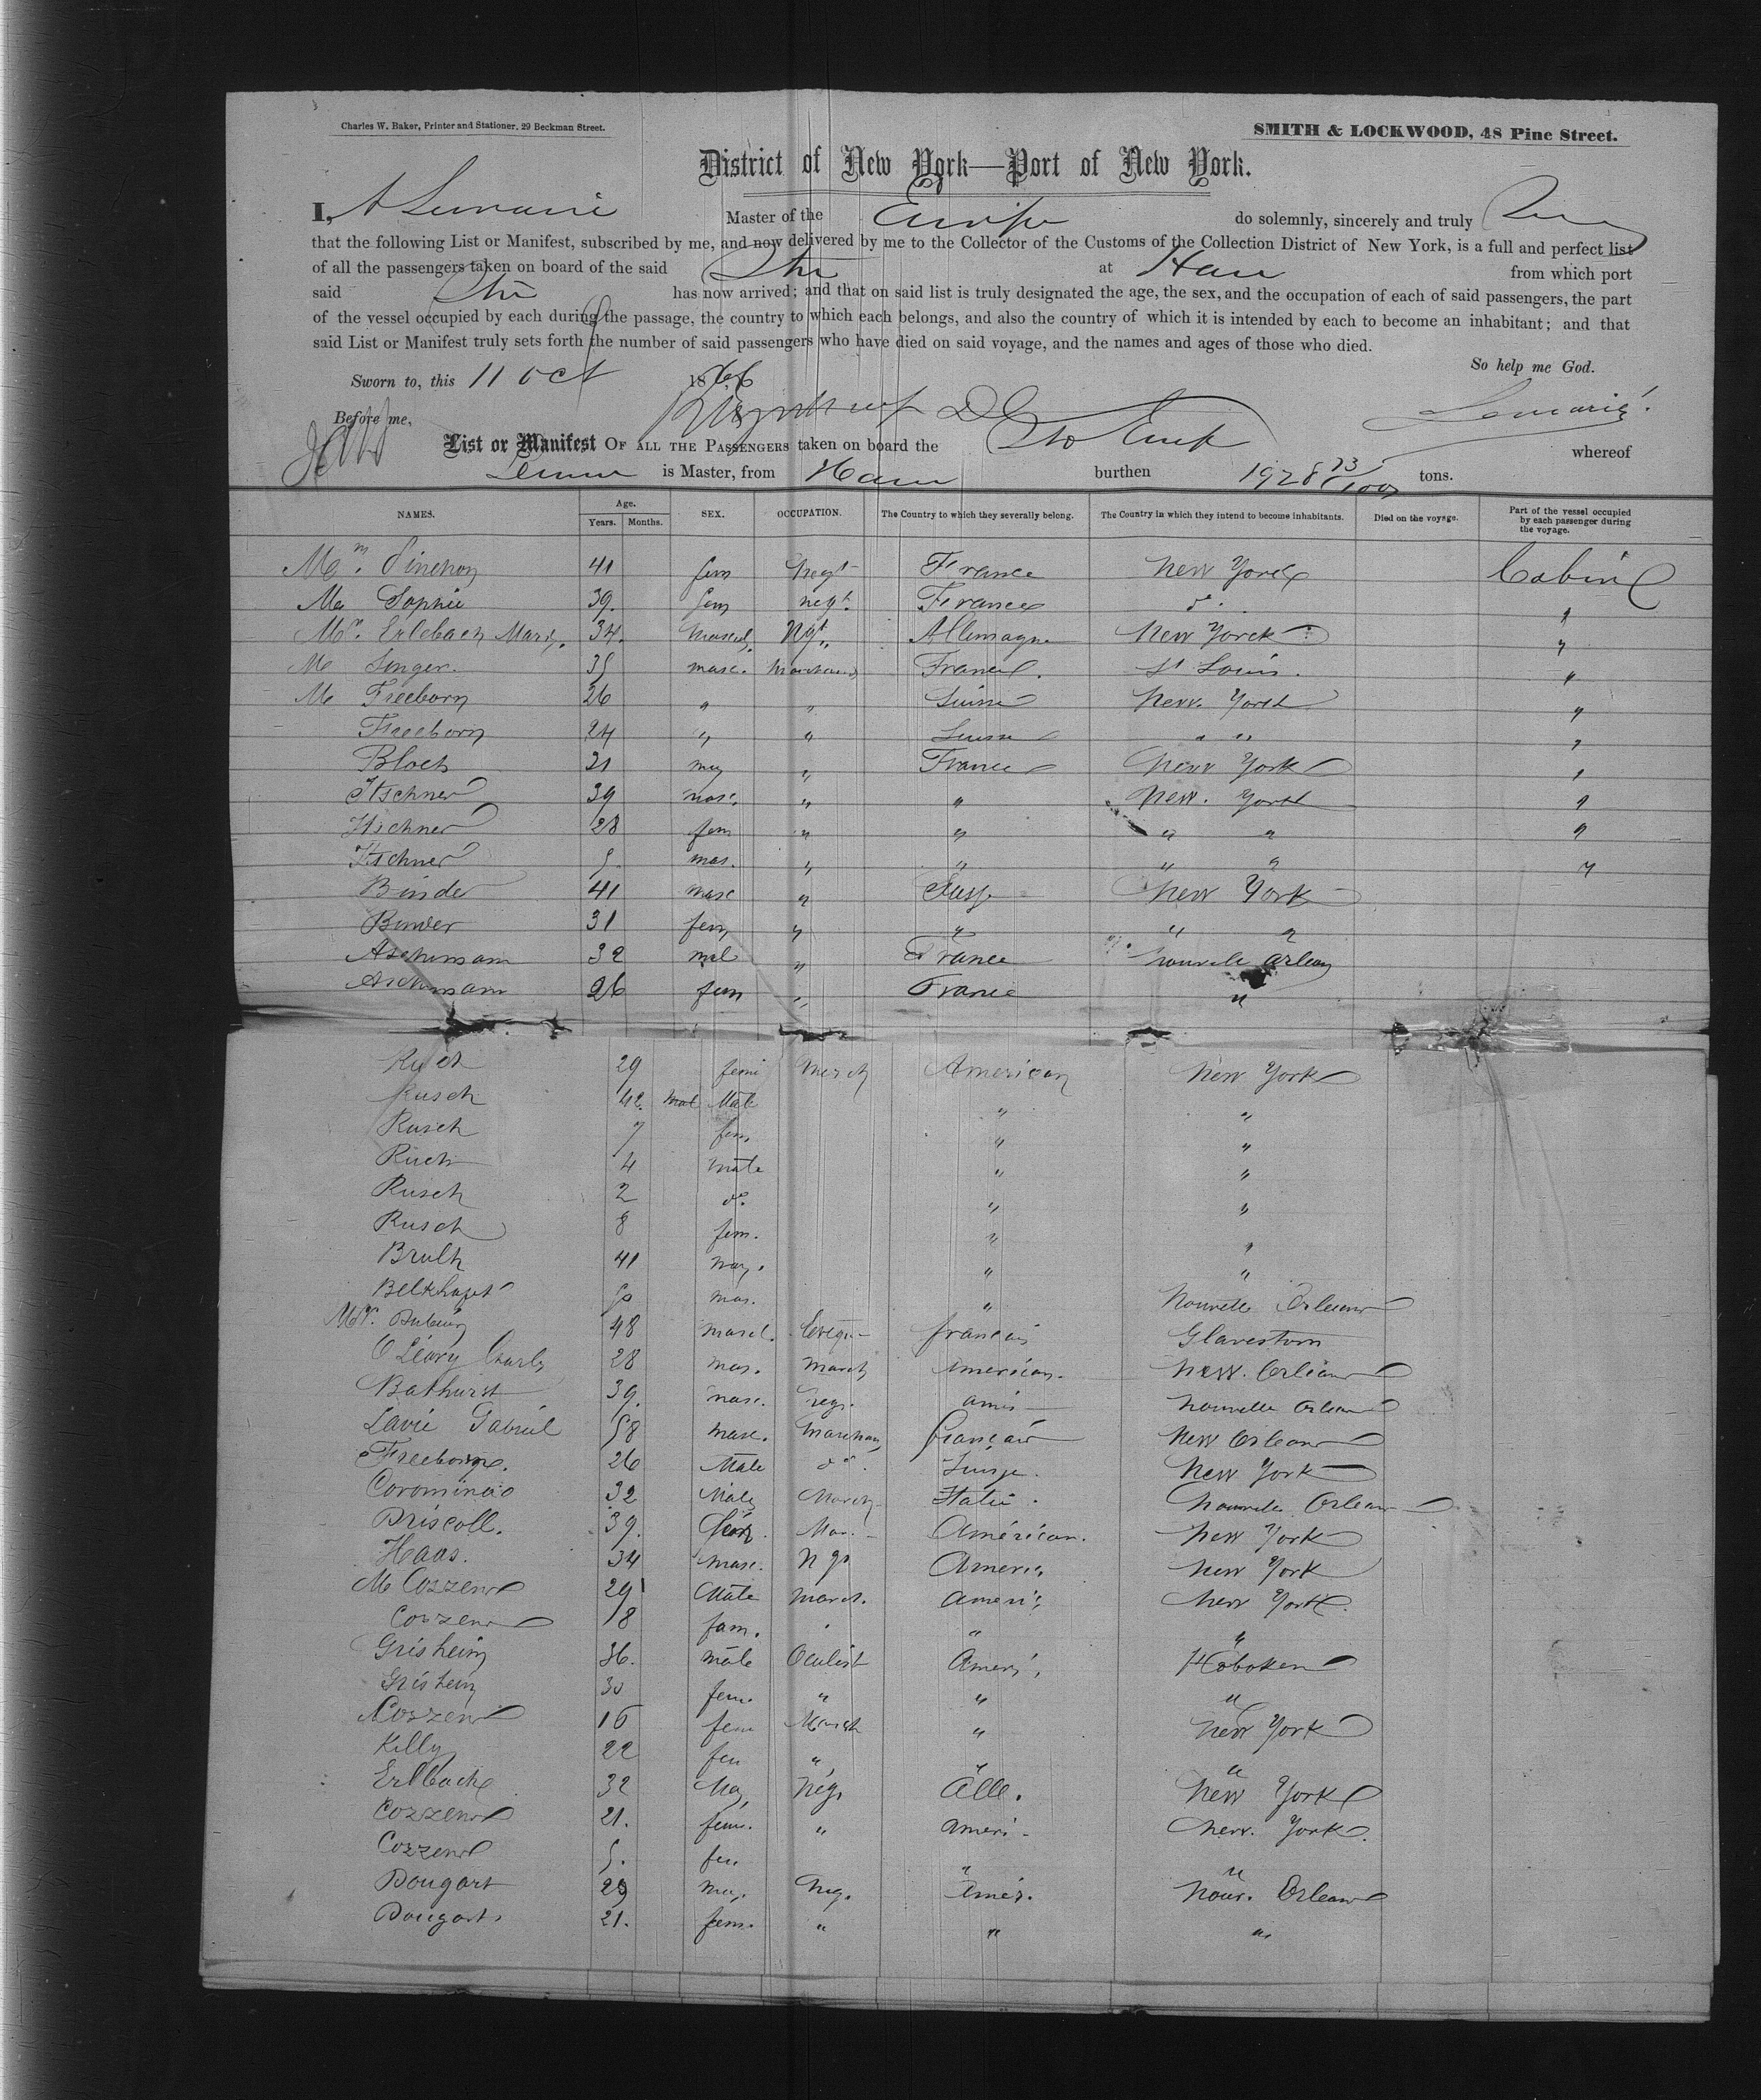 Charles W. Baker, Printer and Stationer, 29 Beekman Street.
SMITH & LOCKWOOD, 48 Pine Street.
District of New York—Port of New York.
I, A Lemarie Master of the Europe do solemnly, sincerely and truly
that the following List or Manifest, subscribed by me, and now delivered by me to the Collector of the Customs of the Collection District of New York, is a full and perfect list
of all the passengers taken on board of the said Str at Havre from which port
said Str has now arrived; and that on said list is truly designated the age, the sex, and the occupation of each of said passengers, the part
of the vessel occupied by each during the passage, the country to which each belongs, and also the country of which it is intended by each to become an inhabitant; and that
said List or Manifest truly sets forth the number of said passengers who have died on said voyage, and the names and ages of those who died.
So help me God.
Sworn to, this 11 Oct 1866
Lemarié.
Before me,
List or Manifest OF ALL THE PASSENGERS taken on board the Str Europe whereof
is Master, from Havre burthen 1928 23/100 tons.
NAMES. Age. Years. Months. SEX. OCCUPATION. The Country to which they severally belong. The Country in which they intend to become inhabitants. Died on the voyage. Part of the vessel occupied by each passenger during the voyage.
Mm. Pinchon 41 fem Negt France New York Cabine
Me Sophie 39. fem negt. France do. "
Mr. Erlebach 34. Mascul. Ngt. Allemagne New Yorck "
M Singer. 35 masc. Marchand France. St Louis. "
M Freeborn 26 " " Suisse New. York "
Freeborn 24 " " Suisse " " "
Bloch 21 " France New York "
Itschner 39 masc. " " New. York "
Itschner 28 fem " " " " "
Itschner 5. mas. " " " " "
Binder 41 masc " Suisse New York
Binder 31 fem, " " " "
Aschmann 32 mal " France Nouvelle Orleans
Aschmann 26 fem " France "
Rusch 29 femi Merch American New York
Rusch 42. Male " "
Rusch 7 fem " "
Rusch 4 Male " "
Rusch 2 do. " "
Rusch 8 fem. " "
Brulh 41 " "
50 mas. " Nouvelle Orleans
Mgr. Dubuis 48 mascl. Evêque français Glavestorn
O'Leary Charles 28 mas. March American. New. Orleans
Bathurst 39. masc. negr. amer Nouvelle Orleans
Lavie Gabriel 58 masc. Marchan français New Orleans
Freeborn. 26 Male do. Suisse. New York
Corominas 32 Male March Italie. Nouvelle Orleans
Driscoll. 39. Mar. Américan. New York
Haas. 34 masc. Ngo Americ, New York
M Cozzens 29 Male March. Ameri, New York.
Cozzens 18 fam. " " "
Grisheim 36. male Oculist Ameri, Hoboken
Grisheim 30 fem. " " "
Cozzens 16 fem March " New York
Kelly 22 fem " " "
Erlbach 32 Mas, Nég, Alle. New York
Cozzens 21. fem. " Ameri. New. York.
Cozzens 5. fem. " "
Dougart 29 Mas. Neg. Amér. Nouv. Orleans
Dougart. 21. fem. " " "